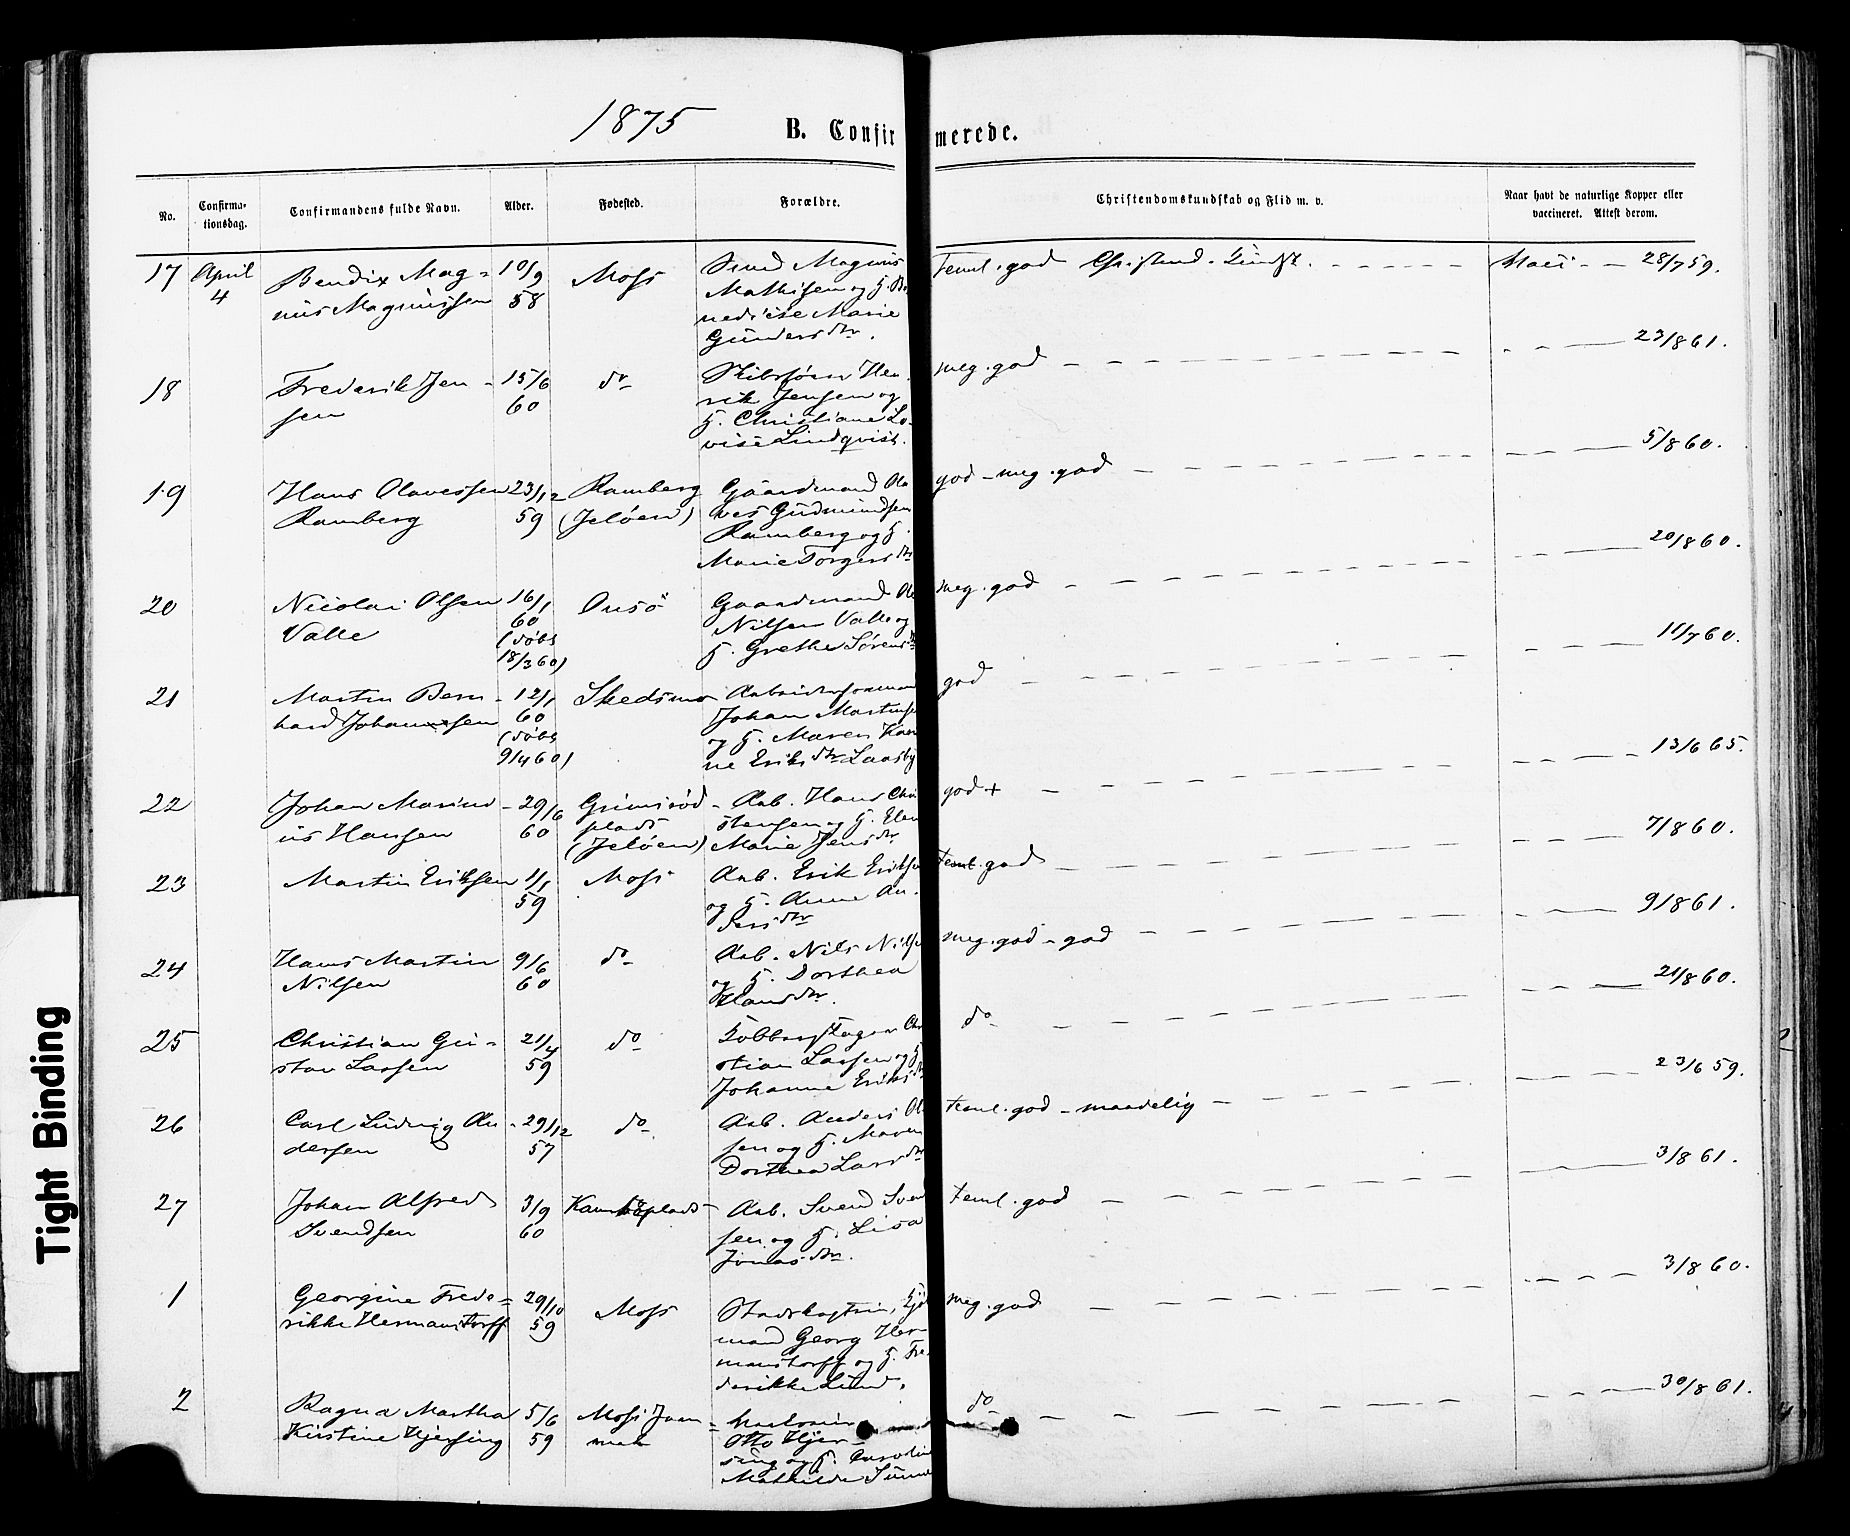 1875
B. Confirmerede.
No.
Confirmationsdag.
Confirmandens fulde Navn.
Alder.
Fødested.
Forældre.
Christendomskundskab og Flid m. v.
Naar havt de naturlige Kopper eller
vaccineret. Attest derom.
17 April 4
Bendix Mag-
nus Magnussen
10/9
58
Moss
Smed Magnus
Mathisen og H. Be
nedicte Marie
Gunders dtr.
Teml. god Christend. Kundsk.
Vacc. 28/7 59.
18
Frederik Jen-
sen
15/6
60
do
Skibsfører Hen
rik Jensen og
H. Christiane Lo-
vise Lindqvist.
meg. god
23/8 61.
19
Hans Olavessen
Ramberg
23/12
59
Ramberg
(Jeløen)
Gaardmand Ola
ves Gudmundsen
Ramberg og H.
Marie Torgers dtr
god - meg. god
5/8 60.
20
Nicolai Olsen
Valle
16/1
60
(døbt
18/3 60)
Onsö
Gaardmand Ole
Nilsen Valle og
H. Grethe Sørens dtr
meg. god
20/8 60.
21
Martin Bern-
hard Johannesen
12/1
60
(døbt
9/4 60)
Skedsmo
Johan Martinsen
og H. Maren Kar
ne Eriks dtr Laasby
god
11/7 60.
22
Johan Marin-
us Hansen
29/6
60
Grimsrød-
plads
(Jeløen)
Arb. Hans Chri
stensen og H. Elen
Marie Jens dtr
god +
13/6 65.
23
Martin Eriksen
1/1
59
Moss
Arb. Erik Eriksen
og H. Anne An-
ders dtr
Teml. god
7/8 60.
24
Hans Martin
Nilsen
9/6
60
do
Arb. Nils Nilsen
og H. Dorthea
Hans dtr.
meg. god - god
9/8 61.
25
Christian Gu-
stav Larsen
21/4
59
do
Kobberslager Chri
stian Larsen og H
Johanne Eriks dtr
do
21/8 60.
26
Carl Ludvig An-
dersen
29/12
57
do
Arb. Anders Ol
sen og H. Maren
Dorthea Lars dtr
teml. god - maadelig
23/6 59.
27
Johan Alfred
Svendsen
3/9
60
Arb. Svend Svend
sen og H. Lisa
Jonas dtr.
teml. god
3/8 61.
1
Georgine Frede-
rikke Hermanstorff
29/10
59
Moss
mand Georg Her-
manstorff og H. Fre-
derikke Lund.
meg. god
3/8 60.
2
Ragna Martha
Kirstine Hjersing
5/6
59
Otto Hjer-
sing og H. Caroline
Mathilde
do
30/8 61.
Tight Binding